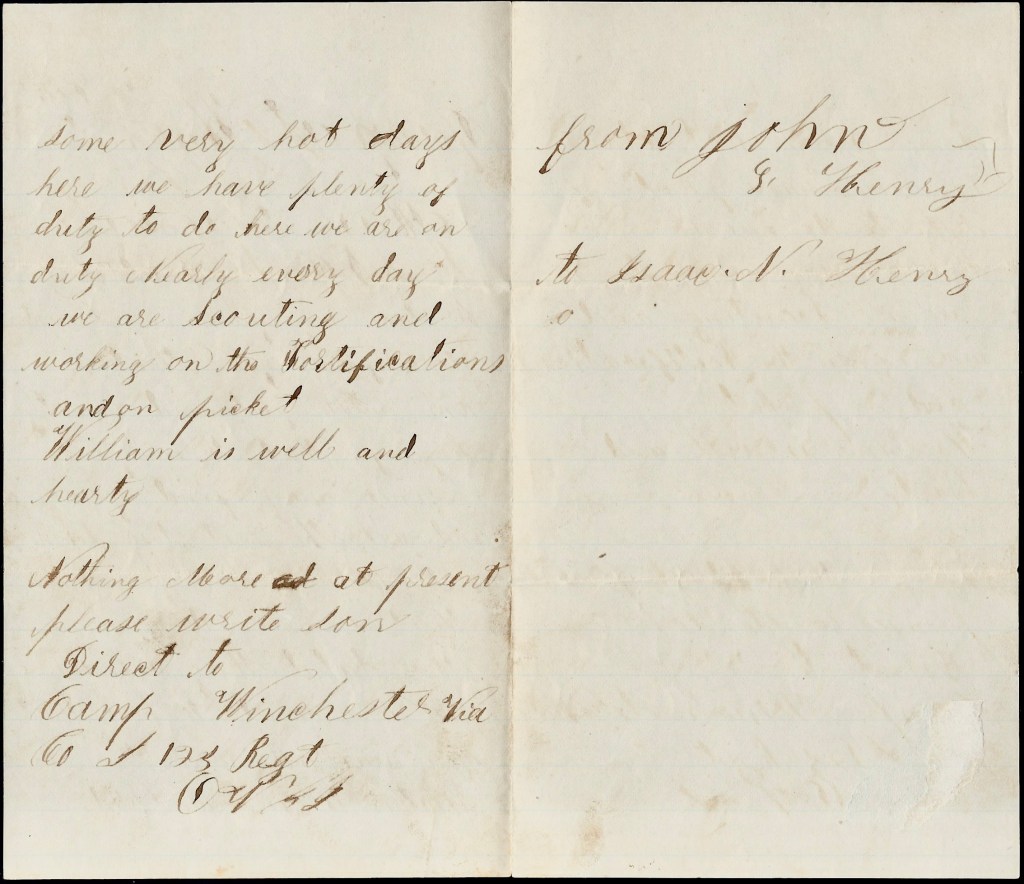 some very hot days
here we have plenty of
duty to do here we are on
duty Nearly every day
we are Scouting and
working on the Fortifications
and on picket
William is well and
hearty
Nothing More at present
please write son
Direct to
Camp Winchester Via
Co I 123 Regt
from John
G. Henry
to Isaac. N. Henry
o